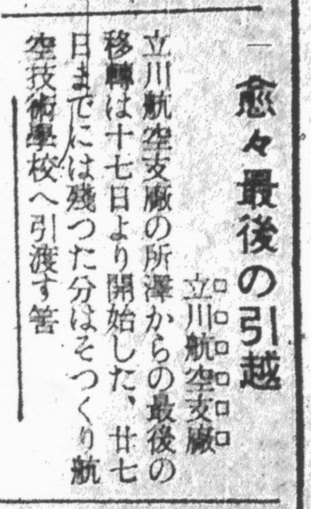 愈々最後の引越
立川航空支廠
立川航空支廠の所澤からの最後の
移轉は十七日より開始した、廿七
日までには殘つた分はそつくり航
空技術學校へ引渡す筈